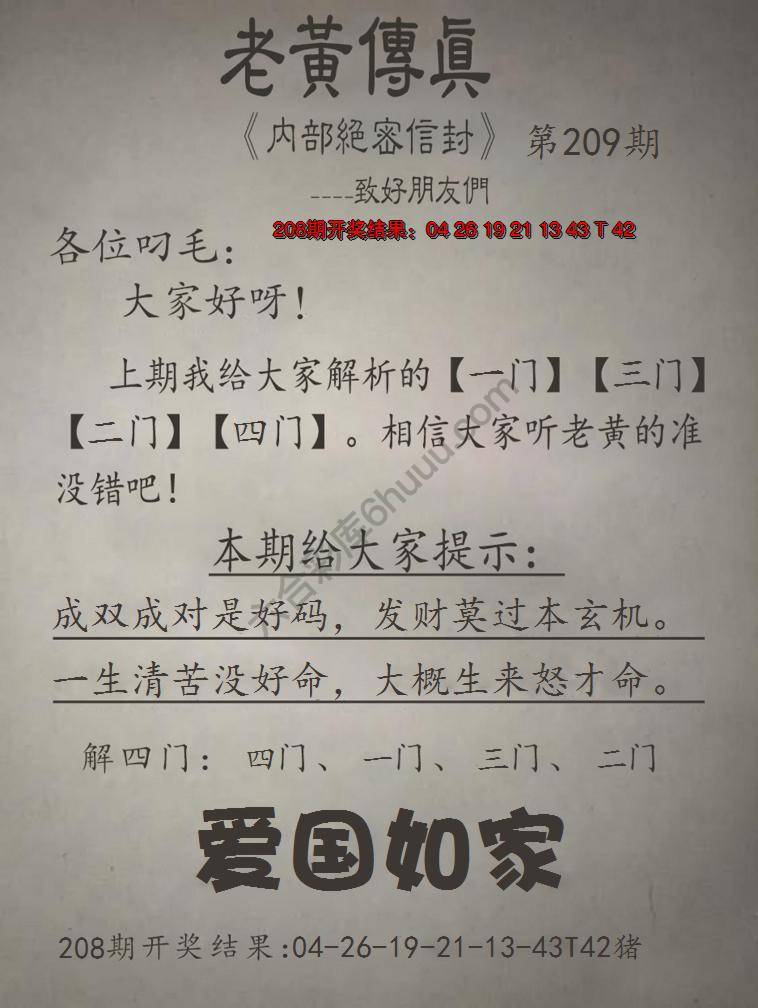 老黃傳眞
《内部絕密信封》 第209期
----致好朋友們
208期开奖结果：04 26 19 21 13 43 T 42
各位叼毛：
大家好呀！
上期我给大家解析的【一门】【三门】
【二门】【四门】。相信大家听老黄的准
没错吧！
本期给大家提示：
成双成对是好码，发财莫过本玄机。
一生清苦没好命，大概生来怒才命。
解四门： 四门、 一门、 三门、 二门
爱国如家
208期开奖结果:04-26-19-21-13-43T42猪
六合彩库6huuu.com